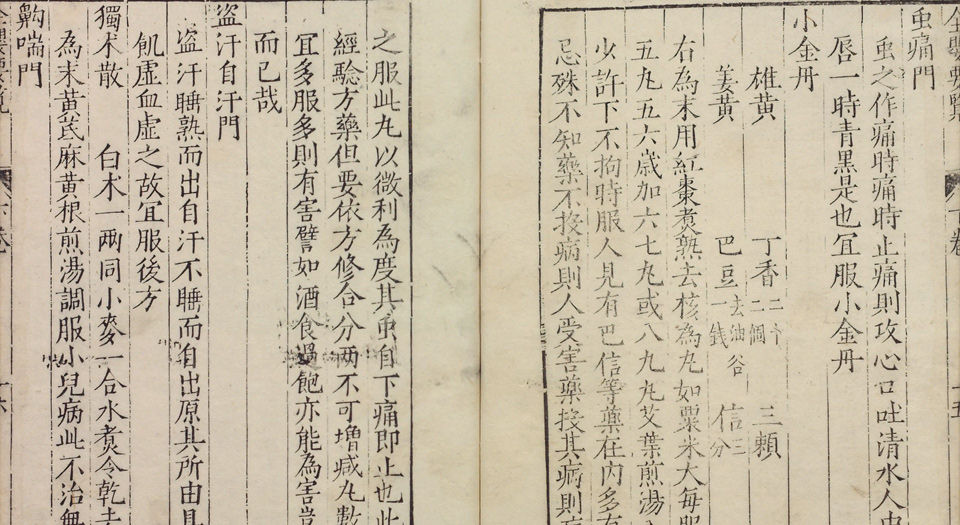 虫痛門
虫之作痛時痛時止痛則攻心口吐清水人中
唇一時青黑是也宜服小金丹
小金丹
雄黄 丁香二十二個 三頼
姜黄 巴豆去油一錢 谷 信三分
右為末用紅棗煮熟去核為丸如粟米大每服
五丸五六歲加六七丸或八九丸艾葉煎湯
少許下不拘時服人見有巴信等藥在内多有
忌殊不知藥不投病則人受害藥投其病則
之服此丸以微利為度其虫自下痛即止也此
經驗方藥但要依方修合分兩不可增减丸數
宜多服多則有害譬如酒食過飽亦能為害豈
而已哉
盗汗自汗門
盗汗睡熟而出自汗不睡而自出原其所由
飢虚血虚之故宜服後方
獨术散 白术一兩同小麥一合水煮令乾去
為末黄茋麻黄根煎湯調服小兒病此不治無
齁喘門